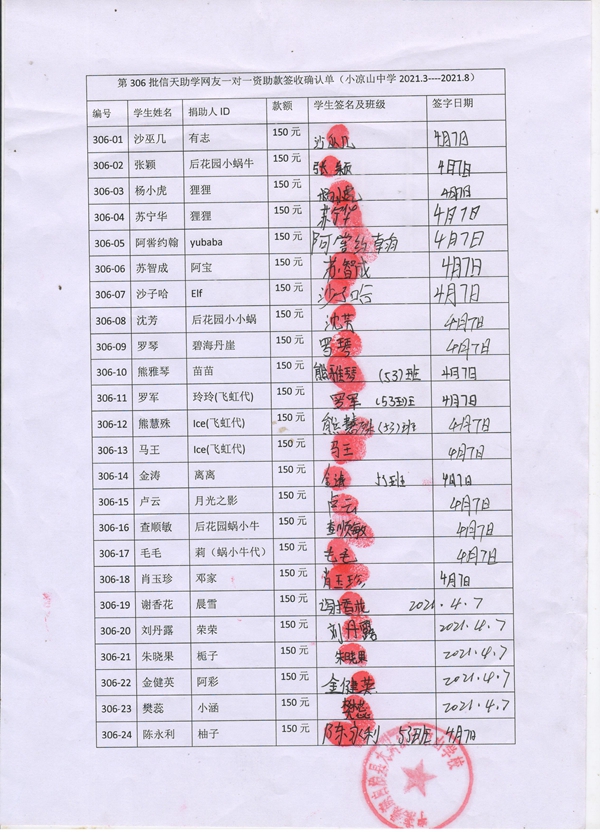 第 306 批信天助学网友一对一资助款签收确认单（小凉山中学 2021.3----2021.8）
编号 学生姓名 捐助人 ID 款额 学生签名及班级 签字日期
306-01 沙巫几 有志 150 元 沙巫几 4月7日
306-02 张颖 后花园小蜗牛 150 元 张颖 4月7日
306-03 杨小虎 狸狸 150 元 杨小虎 4月7日
306-04 苏宁华 狸狸 150 元 苏宁华 4月7日
306-05 阿喾约翰 yubaba 150 元 阿喾约翰 4月7日
306-06 苏智成 阿宝 150 元 苏智成 4月7日
306-07 沙子哈 Elf 150 元 沙子哈 4月7日
306-08 沈芳 后花园小小蜗 150 元 沈芳 4月7日
306-09 罗琴 碧海丹崖 150 元 罗琴 4月7日
306-10 熊雅琴 苗苗 150 元 熊雅琴 (53)班 4月7日
306-11 罗军 玲玲(飞虹代) 150 元 罗军 (53)班 4月7日
306-12 熊慧殊 Ice(飞虹代) 150 元 熊慧殊(53)班 4月7日
306-13 马王 Ice(飞虹代) 150 元 马王 4月7日
306-14 金涛 离离 150 元 金涛 53班 4月7日
306-15 卢云 月光之影 150 元 卢云 4月7日
306-16 查顺敏 后花园蜗小牛 150 元 查顺敏 4月7日
306-17 毛毛 莉（蜗小牛代） 150 元 毛毛 4月7日
306-18 肖玉珍 邓家 150 元 肖玉珍 4月7日
306-19 谢香花 晨雪 150 元 谢香花 2021.4.7
306-20 刘丹露 荣荣 150 元 刘丹露 2021.4.7
306-21 朱晓果 栀子 150 元 朱晓果 2021.4.7
306-22 金健英 阿彩 150 元 金健英 2021.4.7
306-23 樊蕊 小涵 150 元 樊蕊 2021.4.7
306-24 陈永利 柚子 150 元 陈永利 53班 4月7日